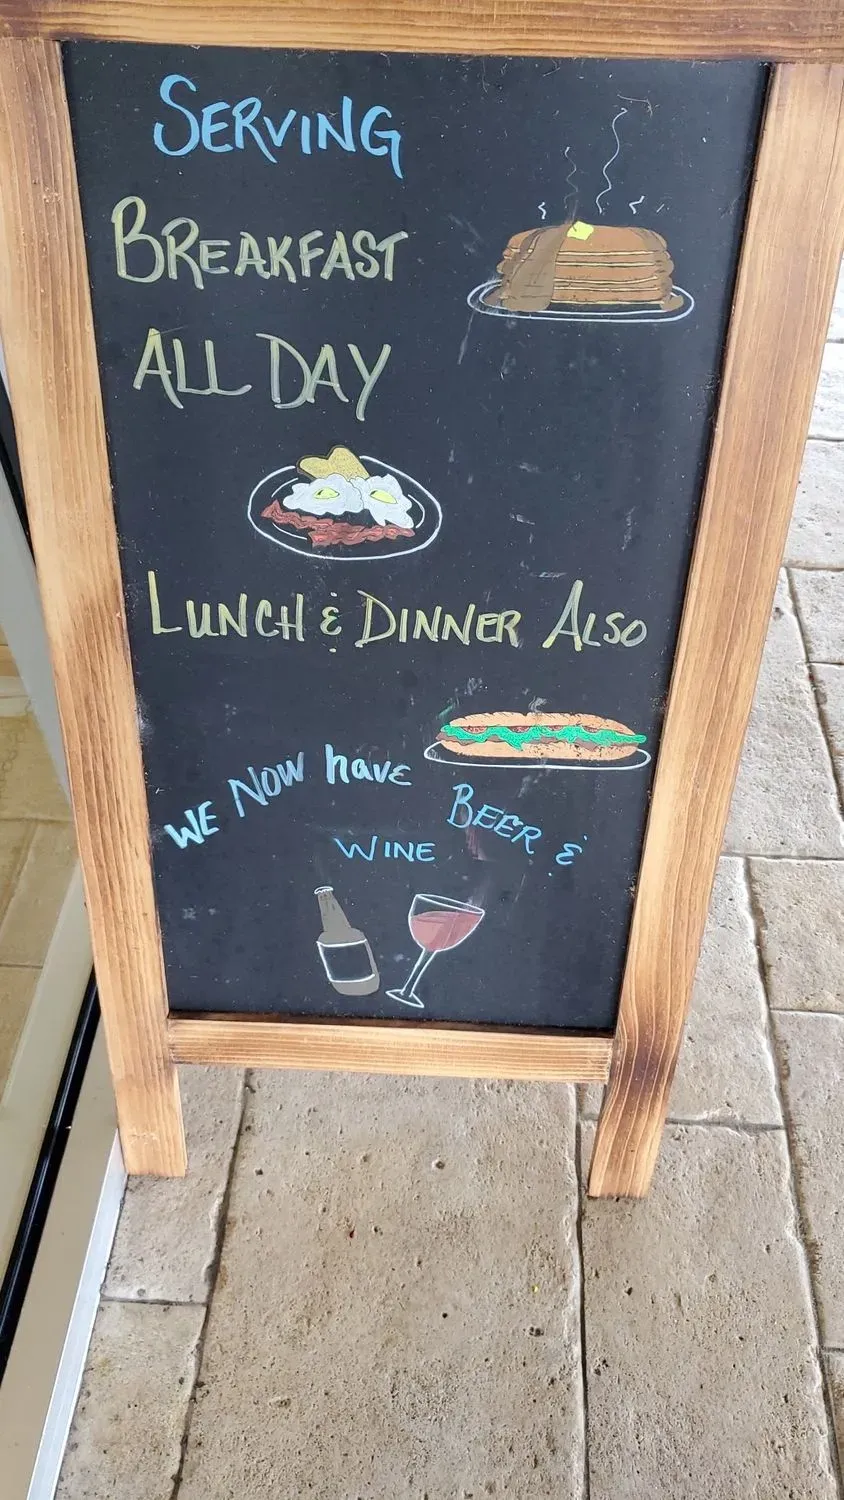 SERVING
BREAKFAST
ALL DAY
LUNCH & DINNER ALSO
WE NOW have BEER &
WINE